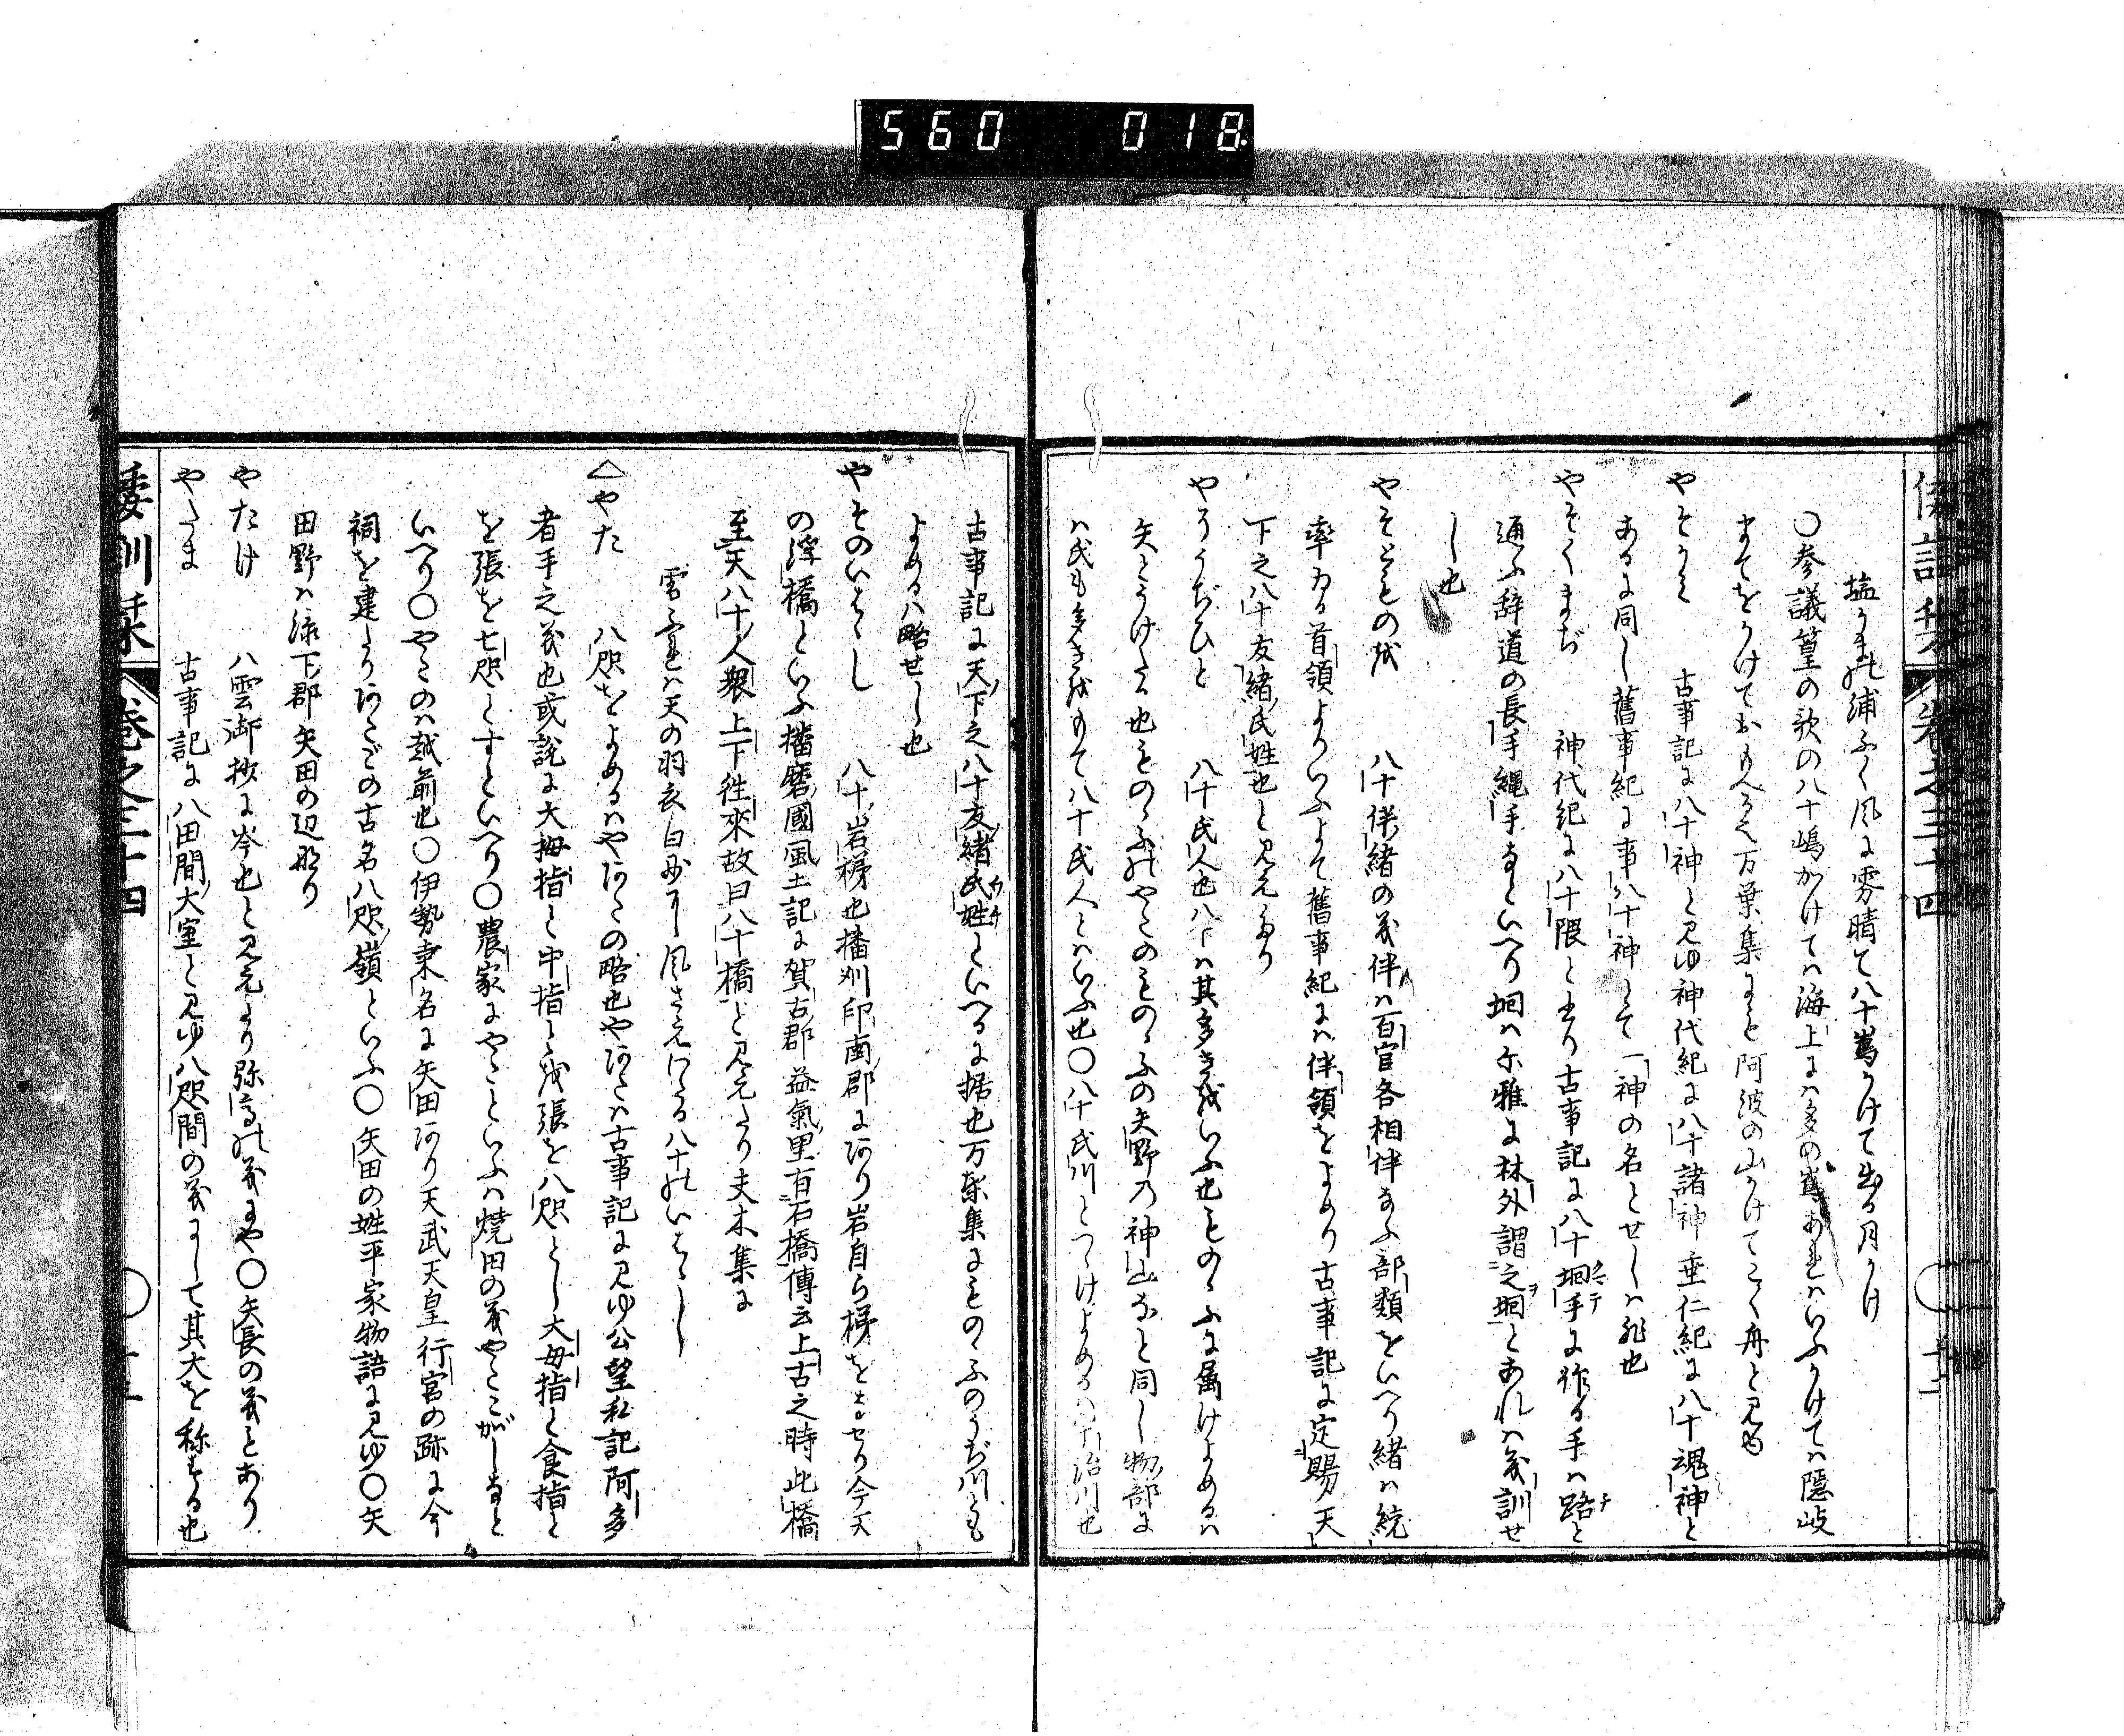 560 018
塩の浦ふく風に雰晴て八十嶌かけて出る月かけ
〇参議篁の歌の八十嶋かけてハ海上にハ多の嶌あれハいふかけてハ隠岐
まてをかけておもへる也万葉集にも阿波の山かけてこく舟と見ゆ
やそかみ 古事記に八十神と見ゆ神代紀に八十諸神垂仁紀に八十魂神と
あるに同し舊事紀に事八十神とて一神の名とせしハ非也
やそくまぢ 神代紀に八十隈と出り古事記に八十坰手に作る手ハ路と
通ふ辞道の長手縄手なといへり坰ハ尓雅に林外謂之坰とあれハ義訓せ
し也
やそとものを 八十伴緒の義伴ハ百官各相伴なふ部類をいへり緒ハ統
率る首領よりいふよて舊事紀にハ伴領をよめり古事記に定賜天
下之八十友緒氏姓也と見えたり
やそうぢひと 八十氏人也八十ハ其多きをいふ也ものゝふに属けよめるハ
矢とうけたる也ものゝふのやそのものゝふの矢野乃神山なと同し物部に
ハ氏も多きをもて八十氏人とハいふ也〇八十氏川とつゝけよめるハ宇治川也
古事記に天下之八十友緒氏姓といへるに据也万葉集にものゝふのうぢ川とも
よめるハ略せし也
やそのいはし 八十岩梯也播刕印南郡にあり岩自ら梯をなせり今天
の浮橋といふ播磨國風土記に賀古郡益氣里有石橋傳云上古之時此橋
至天八十人衆上下徃來故曰八十橋と見えたり夫木集に
雲ふれハ天の羽衣白妙に風さえわたる八十のいはゝし
△やた 八咫をよめるハやあたの略也やあたハ古事記に見ゆ公望私記阿多
者手之義也或説に大拇指と中指とを張を八咫とし大母指と食指と
を張を七咫とすといへり〇農家にやたといふハ焼田の義やたこがしなと
いへり〇やたのハ越前也〇伊勢桒名に矢田あり天武天皇行宮の跡に今
祠を建たりあたごの古名八咫嶺といふ〇矢田の姓平家物語に見ゆ〇矢
田野ハ添下郡矢田の辺なり
やたけ 八雲御抄に岑也と見えたり弥高の義にや〇矢長の義もあり
やたま 古事記に八田間大室と見ゆ八咫間の義にして其大を称する也
倭訓栞 卷之三十四